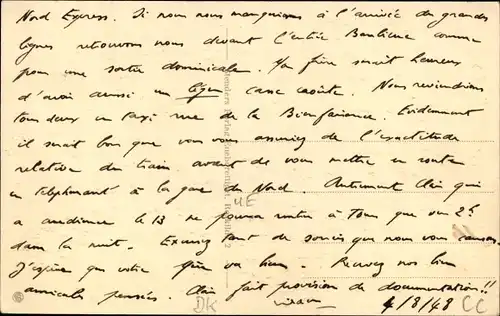 Nord Express. Si nous nous manquions à l'arrivée des grandes
lignes retrouvons nous devant l'entrée Banlieue comme
pour une sortie dominicale. frère serait heureux
d'avoir aussi un léger casse croûte. Nous reviendrions
tous deux en taxi rue de la Bienfaisance. Evidemment
il serait bon que vous vous assuriez de l'exactitude
relative du train avant de vous mettre en route
en téléphonant à la gare du Nord. Autrement Clair qui
a audience le 13 ne pourra rentrer à Tours que vers 2h
dans la nuit. Excusez tant de soucis que nous vous causons.
J'espère que votre va bien. Recevez nos bien
amicales pensées. Clair fait provision de documentation!!
4/8/48
DK
CC